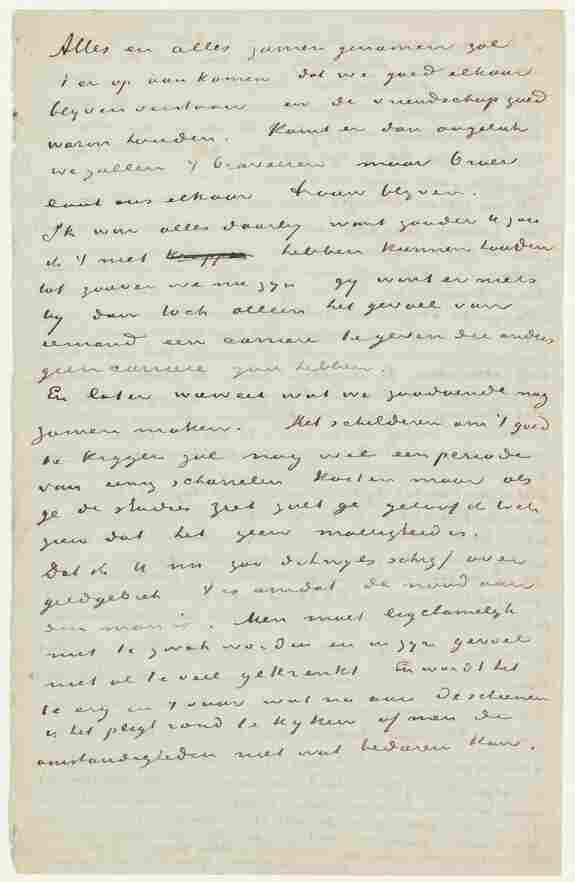 Alles en alles zamen genomen zal
't er op aan komen dat we goed elkaar
blijven verstaan en de vriendschap goed
warm houden. Komt er dan ongeluk
we zullen 't braveeren maar Broer
laat ons elkaar trouw blijven.
Ik win alles daarbij want zonder U zou
ik 't niet hebben kunnen houden
tot zoover we nu zijn gij wint er niets
bij dan toch alleen het gevoel van
iemand een carriere te geven die anders
geen carriere zou hebben.
En later wie weet wat we zoodoende nog
zamen maken. Het schilderen om 't goed
te krijgen zal nog wel een periode
van eenig scharrelen kosten maar als
ge de studies ziet zult ge geloof ik toch
zien dat het geen malligheid is.
Dat ik U nu zoo dikwijls schrijf over
geldgebrek 't is omdat de nood aan
den man is. Men moet ligchamelijk
niet te zwak worden en in zijn gevoel
niet al te veel gekrenkt En wordt het
te erg en 't vuur wat na aan de schenen
is het pligt rond te kijken of men de
omstandigheden niet wat bedaren kan.